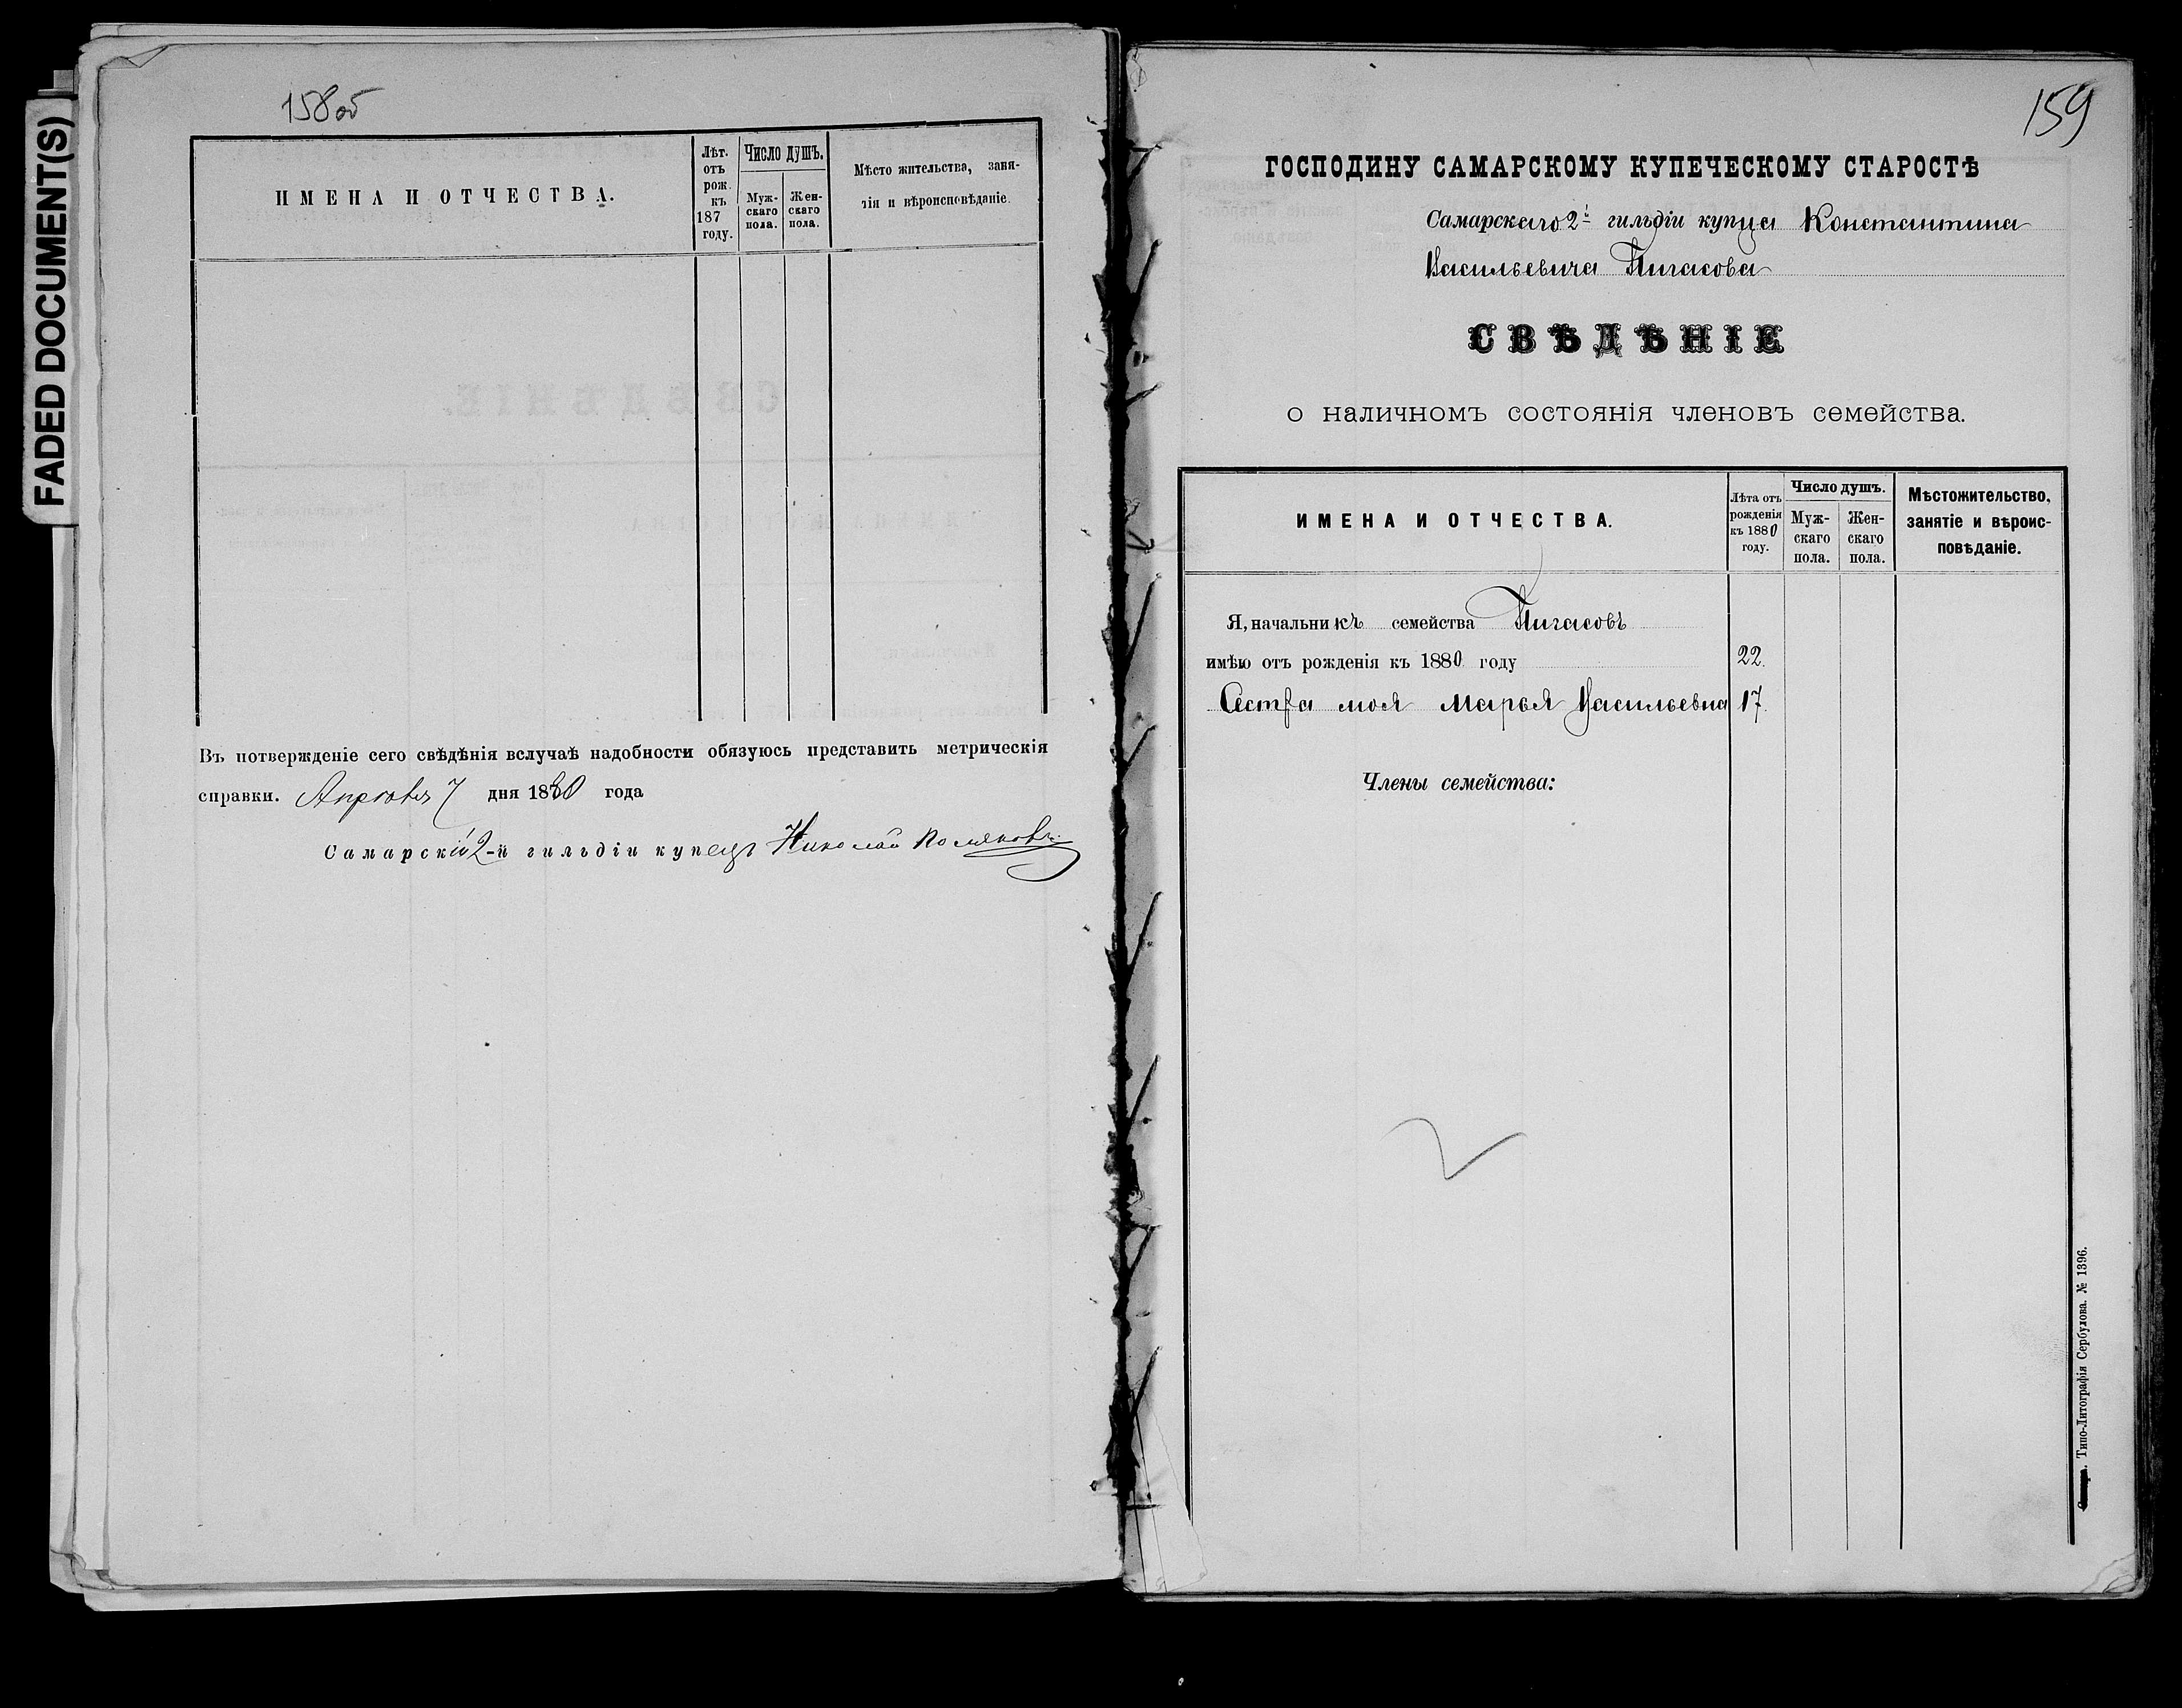 FADED DOCUMENT(S)
158об
ИМЕНА И ОТЧЕСТВА.
Лѣт. отъ рож. къ 187 году.
Число душъ.
Муж- скаго пола.
Жен- скаго пола.
Мѣсто жительства, заня-
тія и вѣроисповѣданіе.
Въ потвержденіе сего свѣдѣнія вслучаѣ надобности обязуюсь представить метрическія
справки. 7 дня 1880 года
Самарскій 2-й гильдіи купецъ Николай
159
ГОСПОДИНУ САМАРСКОМУ КУПЕЧЕСКОМУ СТАРОСТѢ
Самарскаго 2й гильдіи купца Константина
Васильевича Пигасова
СВѢДѢНІЕ
о наличномъ состоянія членовъ семейства.
ИМЕНА И ОТЧЕСТВА.
Лѣта отъ рожденія къ 1880 году.
Число душъ.
Муж- скаго пола.
Жен- скаго пола.
Мѣстожительство,
занятіе и вѣроис-
повѣданіе.
Я, начальникъ семейства Пигасовъ
имѣю отъ рожденія къ 1880 году 22.
Сестра моя Марья Васильевна 17.
Члены семейства:
Самара. Типо-Литографія Сербулова. № 1396.